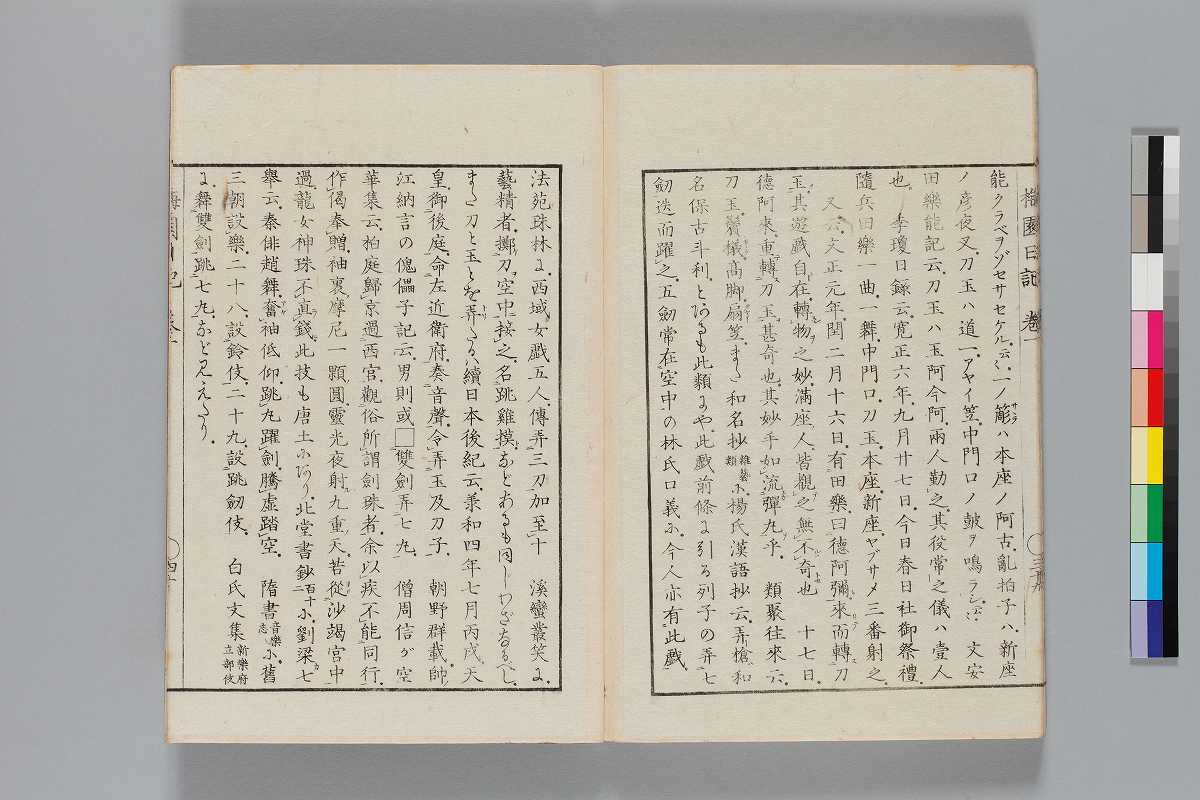 梅園日記 卷一
能クラベヲゾセサセケル。云〻。一ノ簓ハ本座ノ阿古。亂拍子ハ。新座
ノ彦夜叉。刀玉ハ道一。アヤイ笠。中門口ノ皷ヲ鳴ラシ云〻。 文安
田樂能記云。刀玉ハ玉阿今阿。兩人勤之。其役常之儀ハ壹人
也。 季瓊日録云。寛正六年。九月廿七日。今日春日社御祭禮。
隨兵田樂一曲。一舞。中門口。刀玉。本座。新座。ヤブサメ三番射之。
又云。文正元年閏二月十六日。有田樂。曰德阿彌。來而轉刀
玉。其遊戯自在。轉物之妙。滿座人皆觀之。無不奇也 十七日。
德阿來。重轉刀玉。甚奇也。其妙手如流彈丸乎。 類聚往來云。
刀玉。鬢儀。高脚。扇笠。また和名抄雜藝類に。楊氏漢語抄云。弄槍。和
名保古斗利。とあるも此類にや。此戯前條に引る列子の弄七
劒迭而躍之。五劒常在空中の林氏口義に。今人亦有此戯。
法苑珠林に。西域女戯五人。傳弄三刀加至十 溪蠻叢笑に。
藝精者。擲刀空中接之。名跳雞摸。などあるも同しわざなるべし。
また刀と玉とを弄たるハ。續日本後紀云。羕和四年七月丙戌。天
皇御後庭。命左近衛府。奏音聲。令弄玉及刀子。 朝野群載。帥
江納言の傀儡子記云。男則或□雙劍弄七丸。 僧周信が空
華集云。柏庭歸京過西宮。觀俗所謂劍珠者。余以疾不能同行。
作偈奉贈。袖裏摩尼一顆圓。靈光夜射九重天。若從沙竭宮中
過。龍女神珠不直錢。此技も唐土にあり。北堂書鈔百十二に。劉梁七
擧云。秦俳趙舞。奮袖低仰。跳丸躍劍。騰虛踏空。 隋書音樂志に。舊
三朝設樂。二十八。設鈴伎。二十九。設跳劒伎。 白氏文集新樂府立部伎
に。舞雙劍跳七丸。など見えたり。